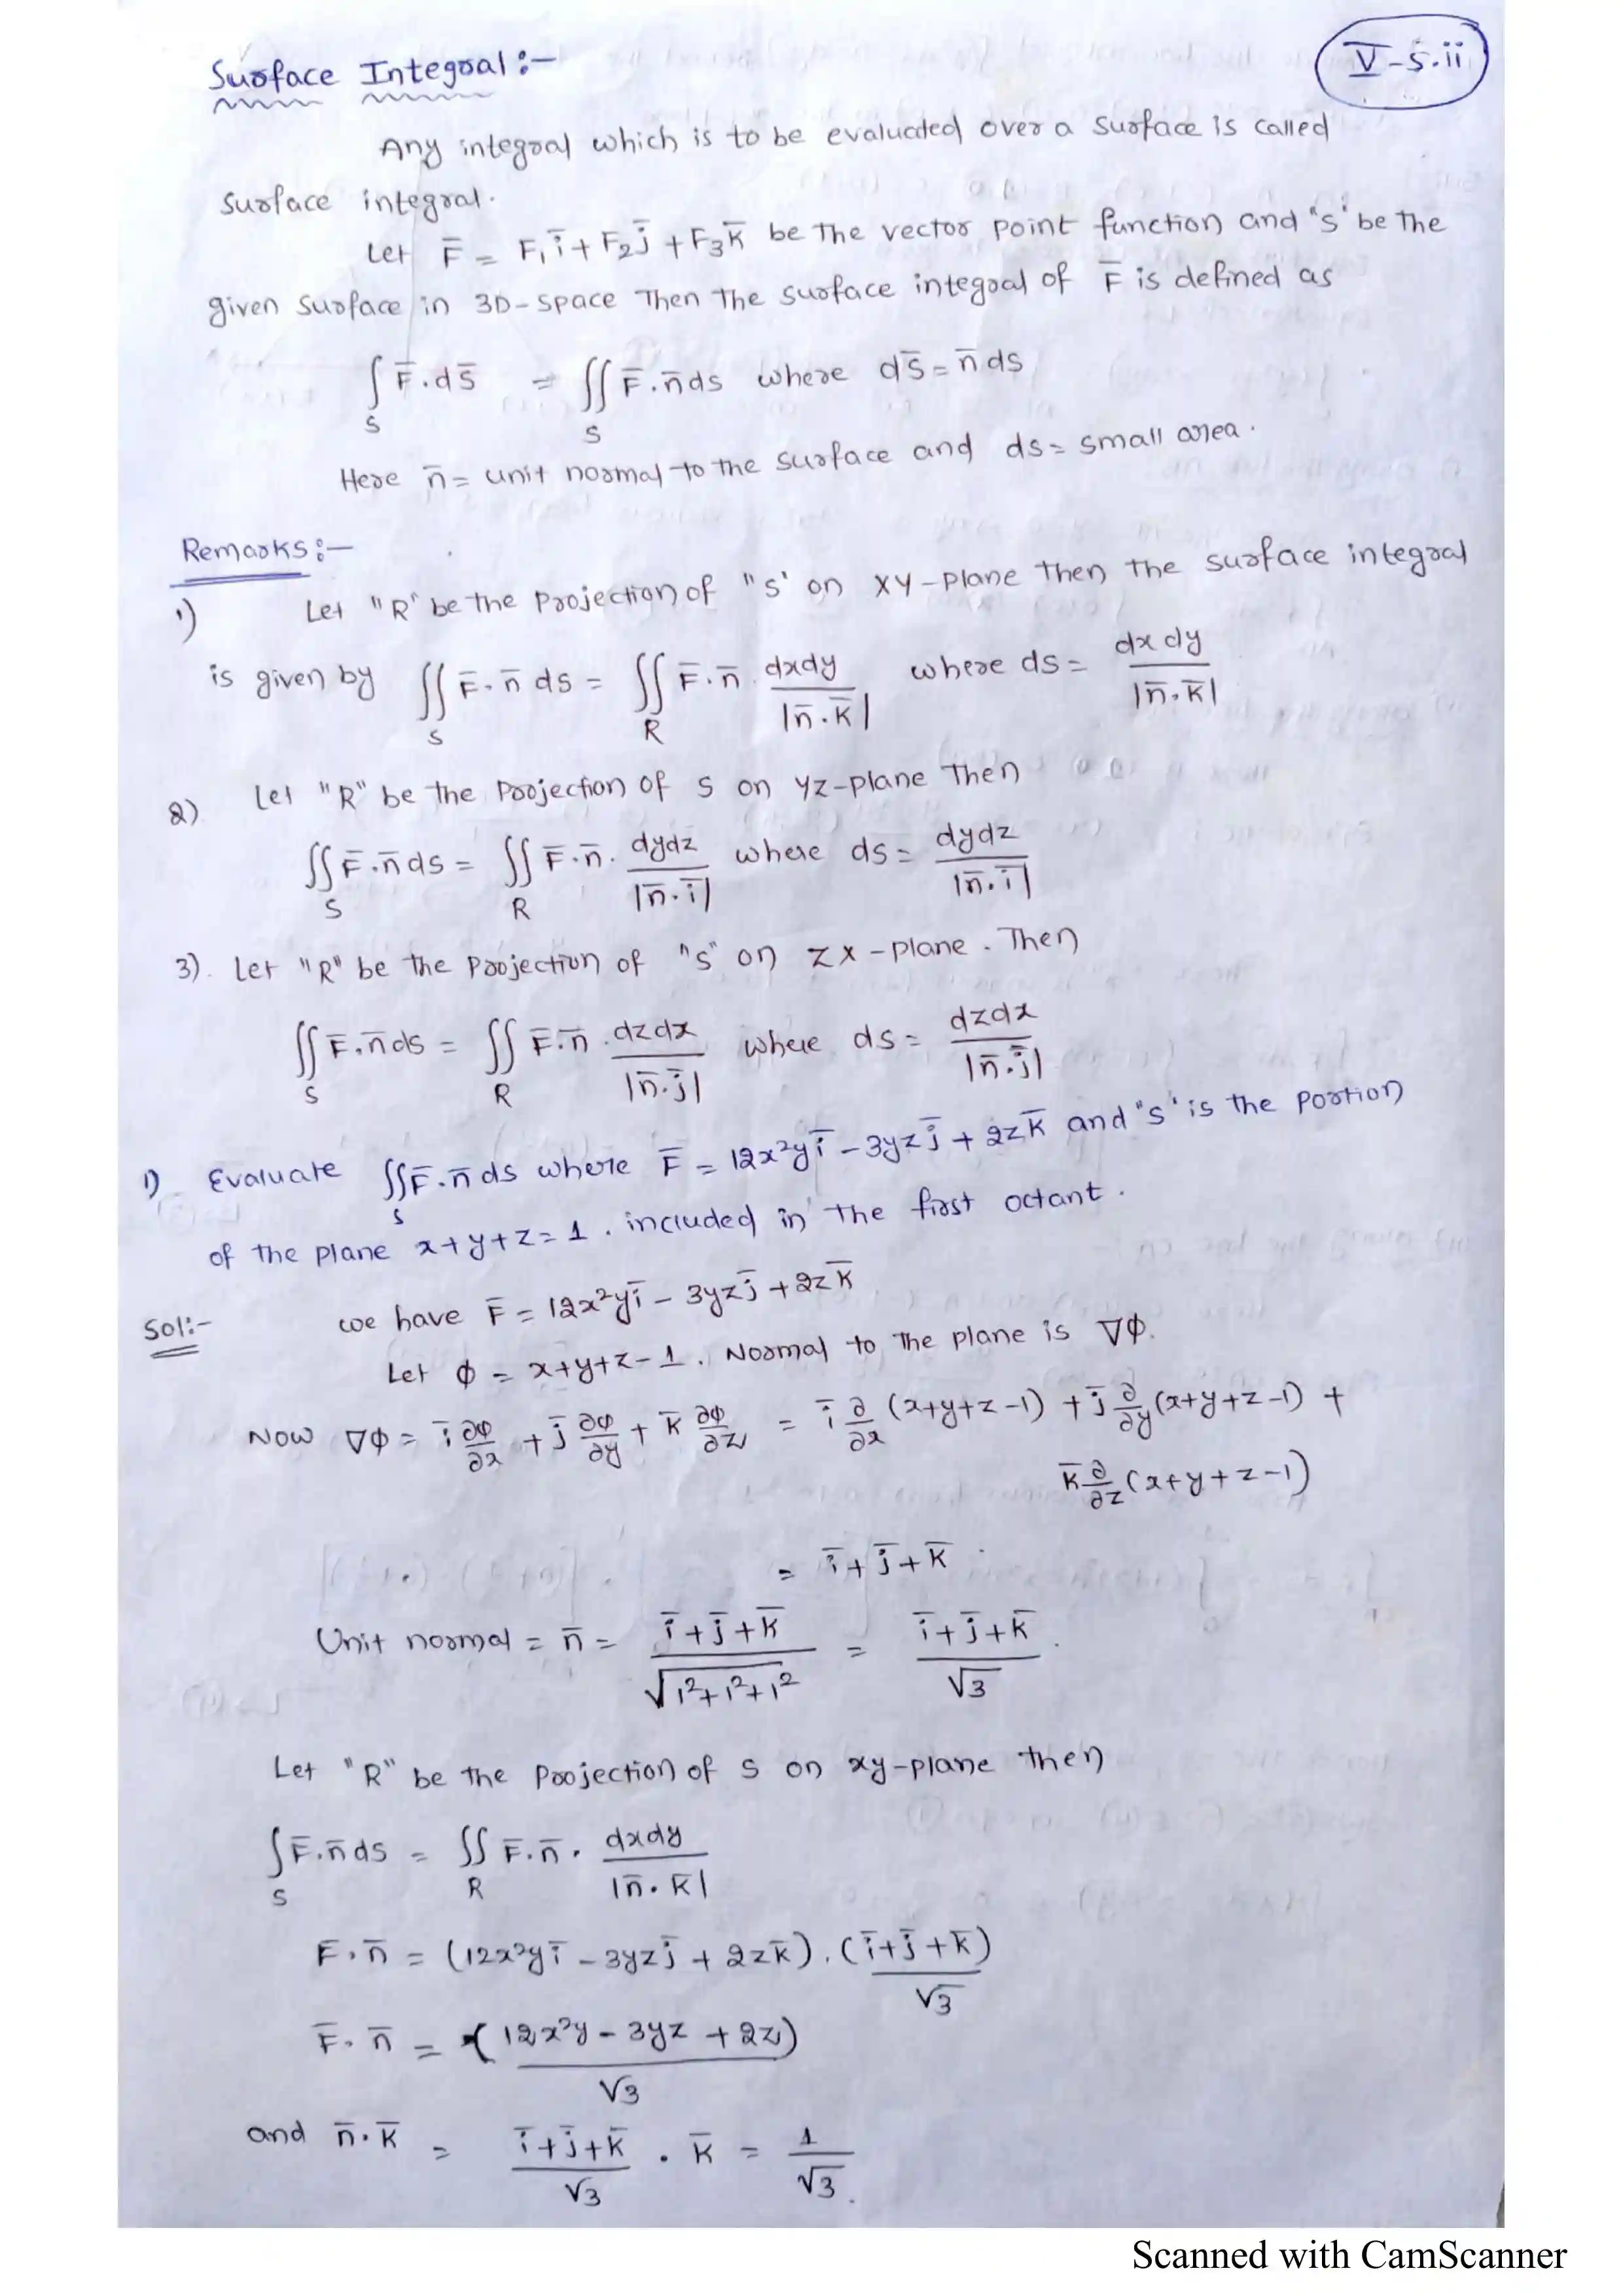 V-S.ii
Surface Integral:-
Any integral which is to be evaluated over a surface is called
surface integral.
Let F̄ = F₁ī + F₂j̄ + F₃k̄ be the vector point function and "s" be the
given surface in 3D-space Then The surface integral of F̄ is defined as
∫_S F̄.ds̄ = ∬_S F̄.n̄ds where ds̄ = n̄ds
Here n̄ = unit normal to the surface and ds = small area.
Remarks:-
1) Let "R" be the projection of "S" on XY-plane Then the surface integral
is given by ∬_S F̄.n̄ ds = ∬_R F̄.n̄. dxdy/|n̄.k̄| where ds = dxdy/|n̄.k̄|
2) Let "R" be the projection of S on YZ-plane Then
∬_S F̄.n̄ds = ∬_R F̄.n̄. dydz/|n̄.ī| where ds = dydz/|n̄.ī|
3). Let "R" be the projection of "s" on ZX-plane. Then
∬_S F̄.n̄ds = ∬_R F̄.n̄. dzdx/|n̄.j̄| where ds = dzdx/|n̄.j̄|
1) Evaluate ∬_S F̄.n̄ds where F̄ = 12x²yī - 3yzj̄ + 2zk̄ and "s" is the portion
of the plane x+y+z=1. included in the first octant.
Sol:- we have F̄ = 12x²yī - 3yzj̄ + 2zk̄
Let φ = x+y+z-1. Normal to the plane is ∇φ.
Now ∇φ = ī ∂φ/∂x + j̄ ∂φ/∂y + k̄ ∂φ/∂z = ī ∂/∂x (x+y+z-1) + j̄ ∂/∂y (x+y+z-1) +
k̄ ∂/∂z (x+y+z-1)
= ī+j̄+k̄
Unit normal = n̄ = (ī+j̄+k̄)/√(1²+1²+1²) = (ī+j̄+k̄)/√3.
Let "R" be the projection of S on xy-plane then
∫_S F̄.n̄ds = ∬_R F̄.n̄. dxdy/|n̄.k̄|
F̄.n̄ = (12x²yī - 3yzj̄ + 2zk̄).(ī+j̄+k̄)/√3
F̄.n̄ = (12x²y - 3yz + 2z)/√3
and n̄.k̄ = (ī+j̄+k̄)/√3 . k̄ = 1/√3.
Scanned with CamScanner